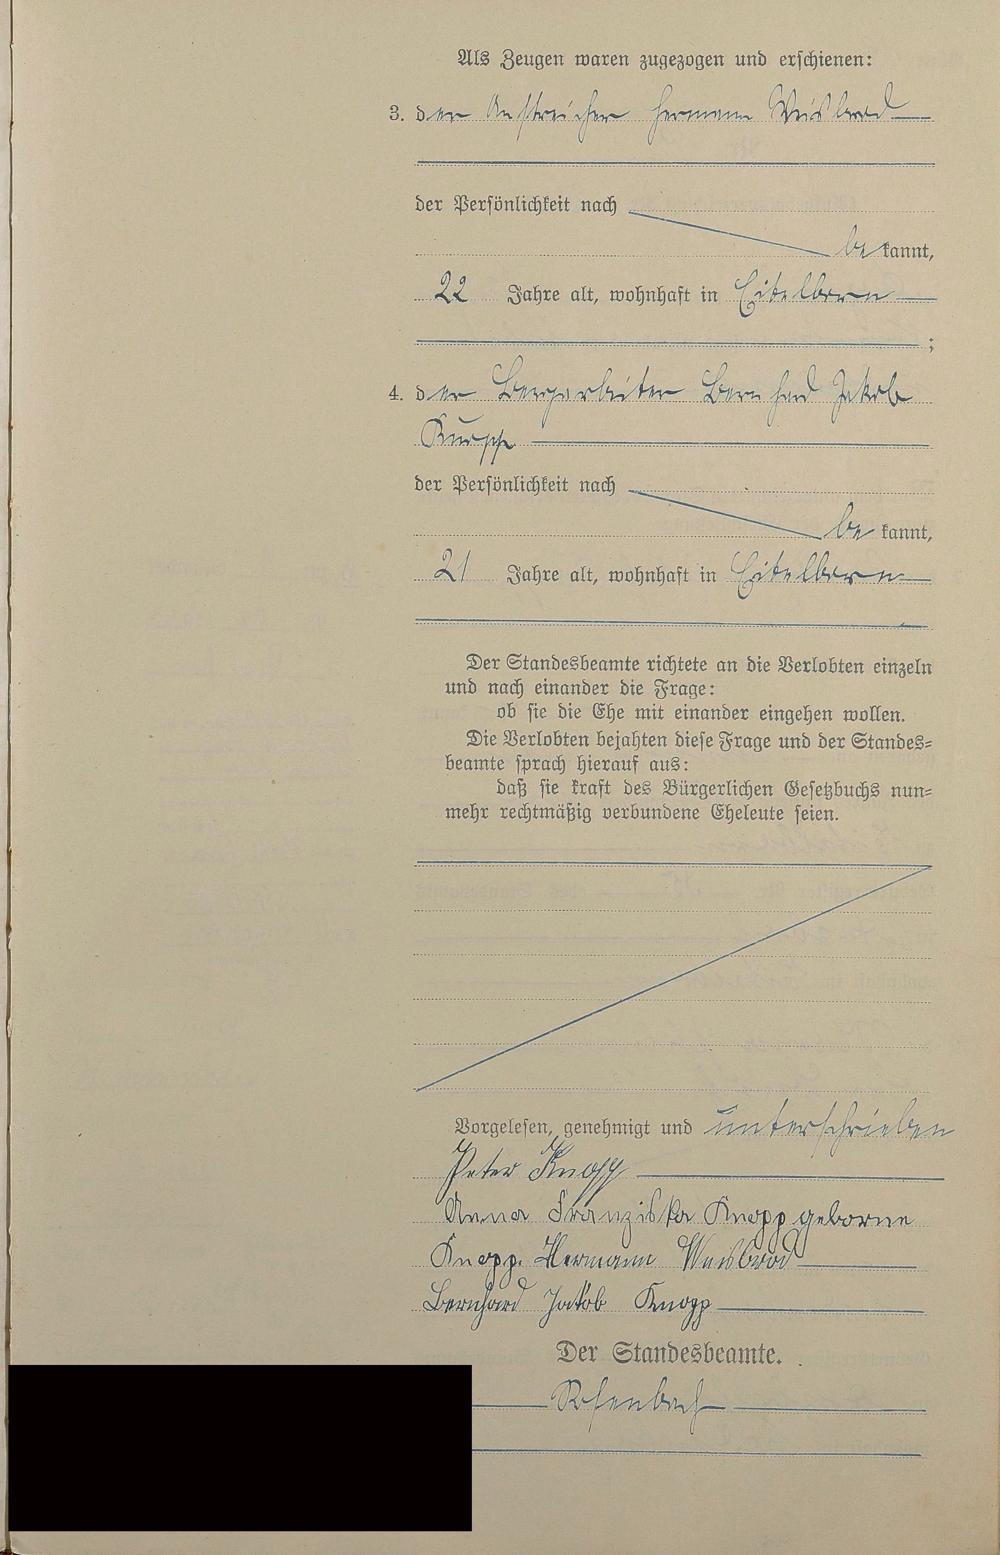 Als Zeugen waren zugezogen und erschienen:
3. der Anstreicher Hermann Weisbrod
der Persönlichkeit nach
bekannt,
22 Jahre alt, wohnhaft in Eitelborn
;
4. der Bergarbeiter Bernhard Jakob
Knopp
der Persönlichkeit nach
bekannt,
21 Jahre alt, wohnhaft in Eitelborn
Der Standesbeamte richtete an die Verlobten einzeln
und nach einander die Frage:
ob sie die Ehe mit einander eingehen wollen.
Die Verlobten bejahten diese Frage und der Standes-
beamte sprach hierauf aus:
daß sie kraft des Bürgerlichen Gesetzbuchs nun-
mehr rechtmäßig verbundene Eheleute seien.
Vorgelesen, genehmigt und unterschrieben
Peter Knopp
Anna Franziska Knopp geborne
Knopp. Hermann Weisbrod
Bernhard Jakob Knopp
Der Standesbeamte.
Rosenbach